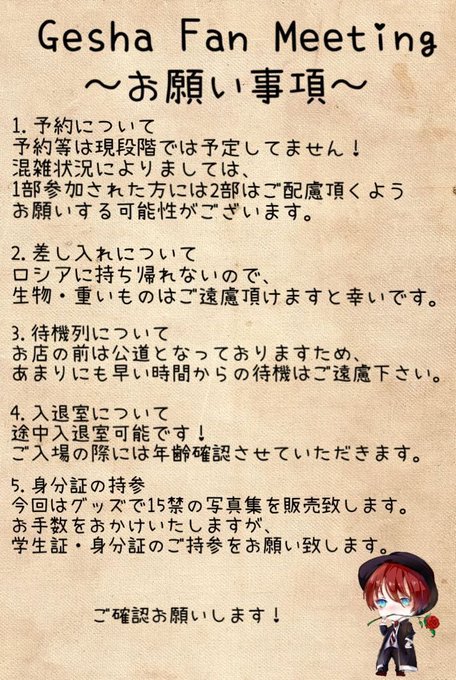 Gesha Fan Meeting
～お願い事項～
1. 予約について
予約等は現段階では予定してません！
混雑状況によりましては、
1部参加された方には2部はご配慮頂くよう
お願いする可能性がございます。
2. 差し入れについて
ロシアに持ち帰れないので、
生物・重いものはご遠慮頂けますと幸いです。
3. 待機列について
お店の前は公道となっておりますため、
あまりにも早い時間からの待機はご遠慮下さい。
4. 入退室について
途中入退室可能です！
ご入場の際には年齢確認させていただきます。
5. 身分証の持参
今回はグッズで15禁の写真集を販売致します。
お手数をおかけいたしますが、
学生証・身分証のご持参をお願い致します。
ご確認お願いします！